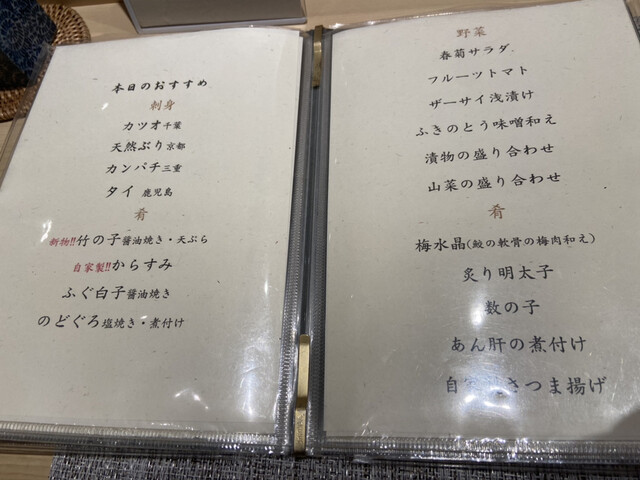 本日のおすすめ
刺身
カツオ千葉
天然ぶり京都
カンパチ三重
タイ 鹿児島
肴
新物!!竹の子醤油焼き・天ぷら
自家製!!からすみ
ふぐ白子醤油焼き
のどぐろ塩焼き・煮付け
野菜
春菊サラダ
フルーツトマト
ザーサイ浅漬け
ふきのとう味噌和え
漬物の盛り合わせ
山菜の盛り合わせ
肴
梅水晶(鮫の軟骨の梅肉和え)
炙り明太子
数の子
あん肝の煮付け
自 さつま揚げ